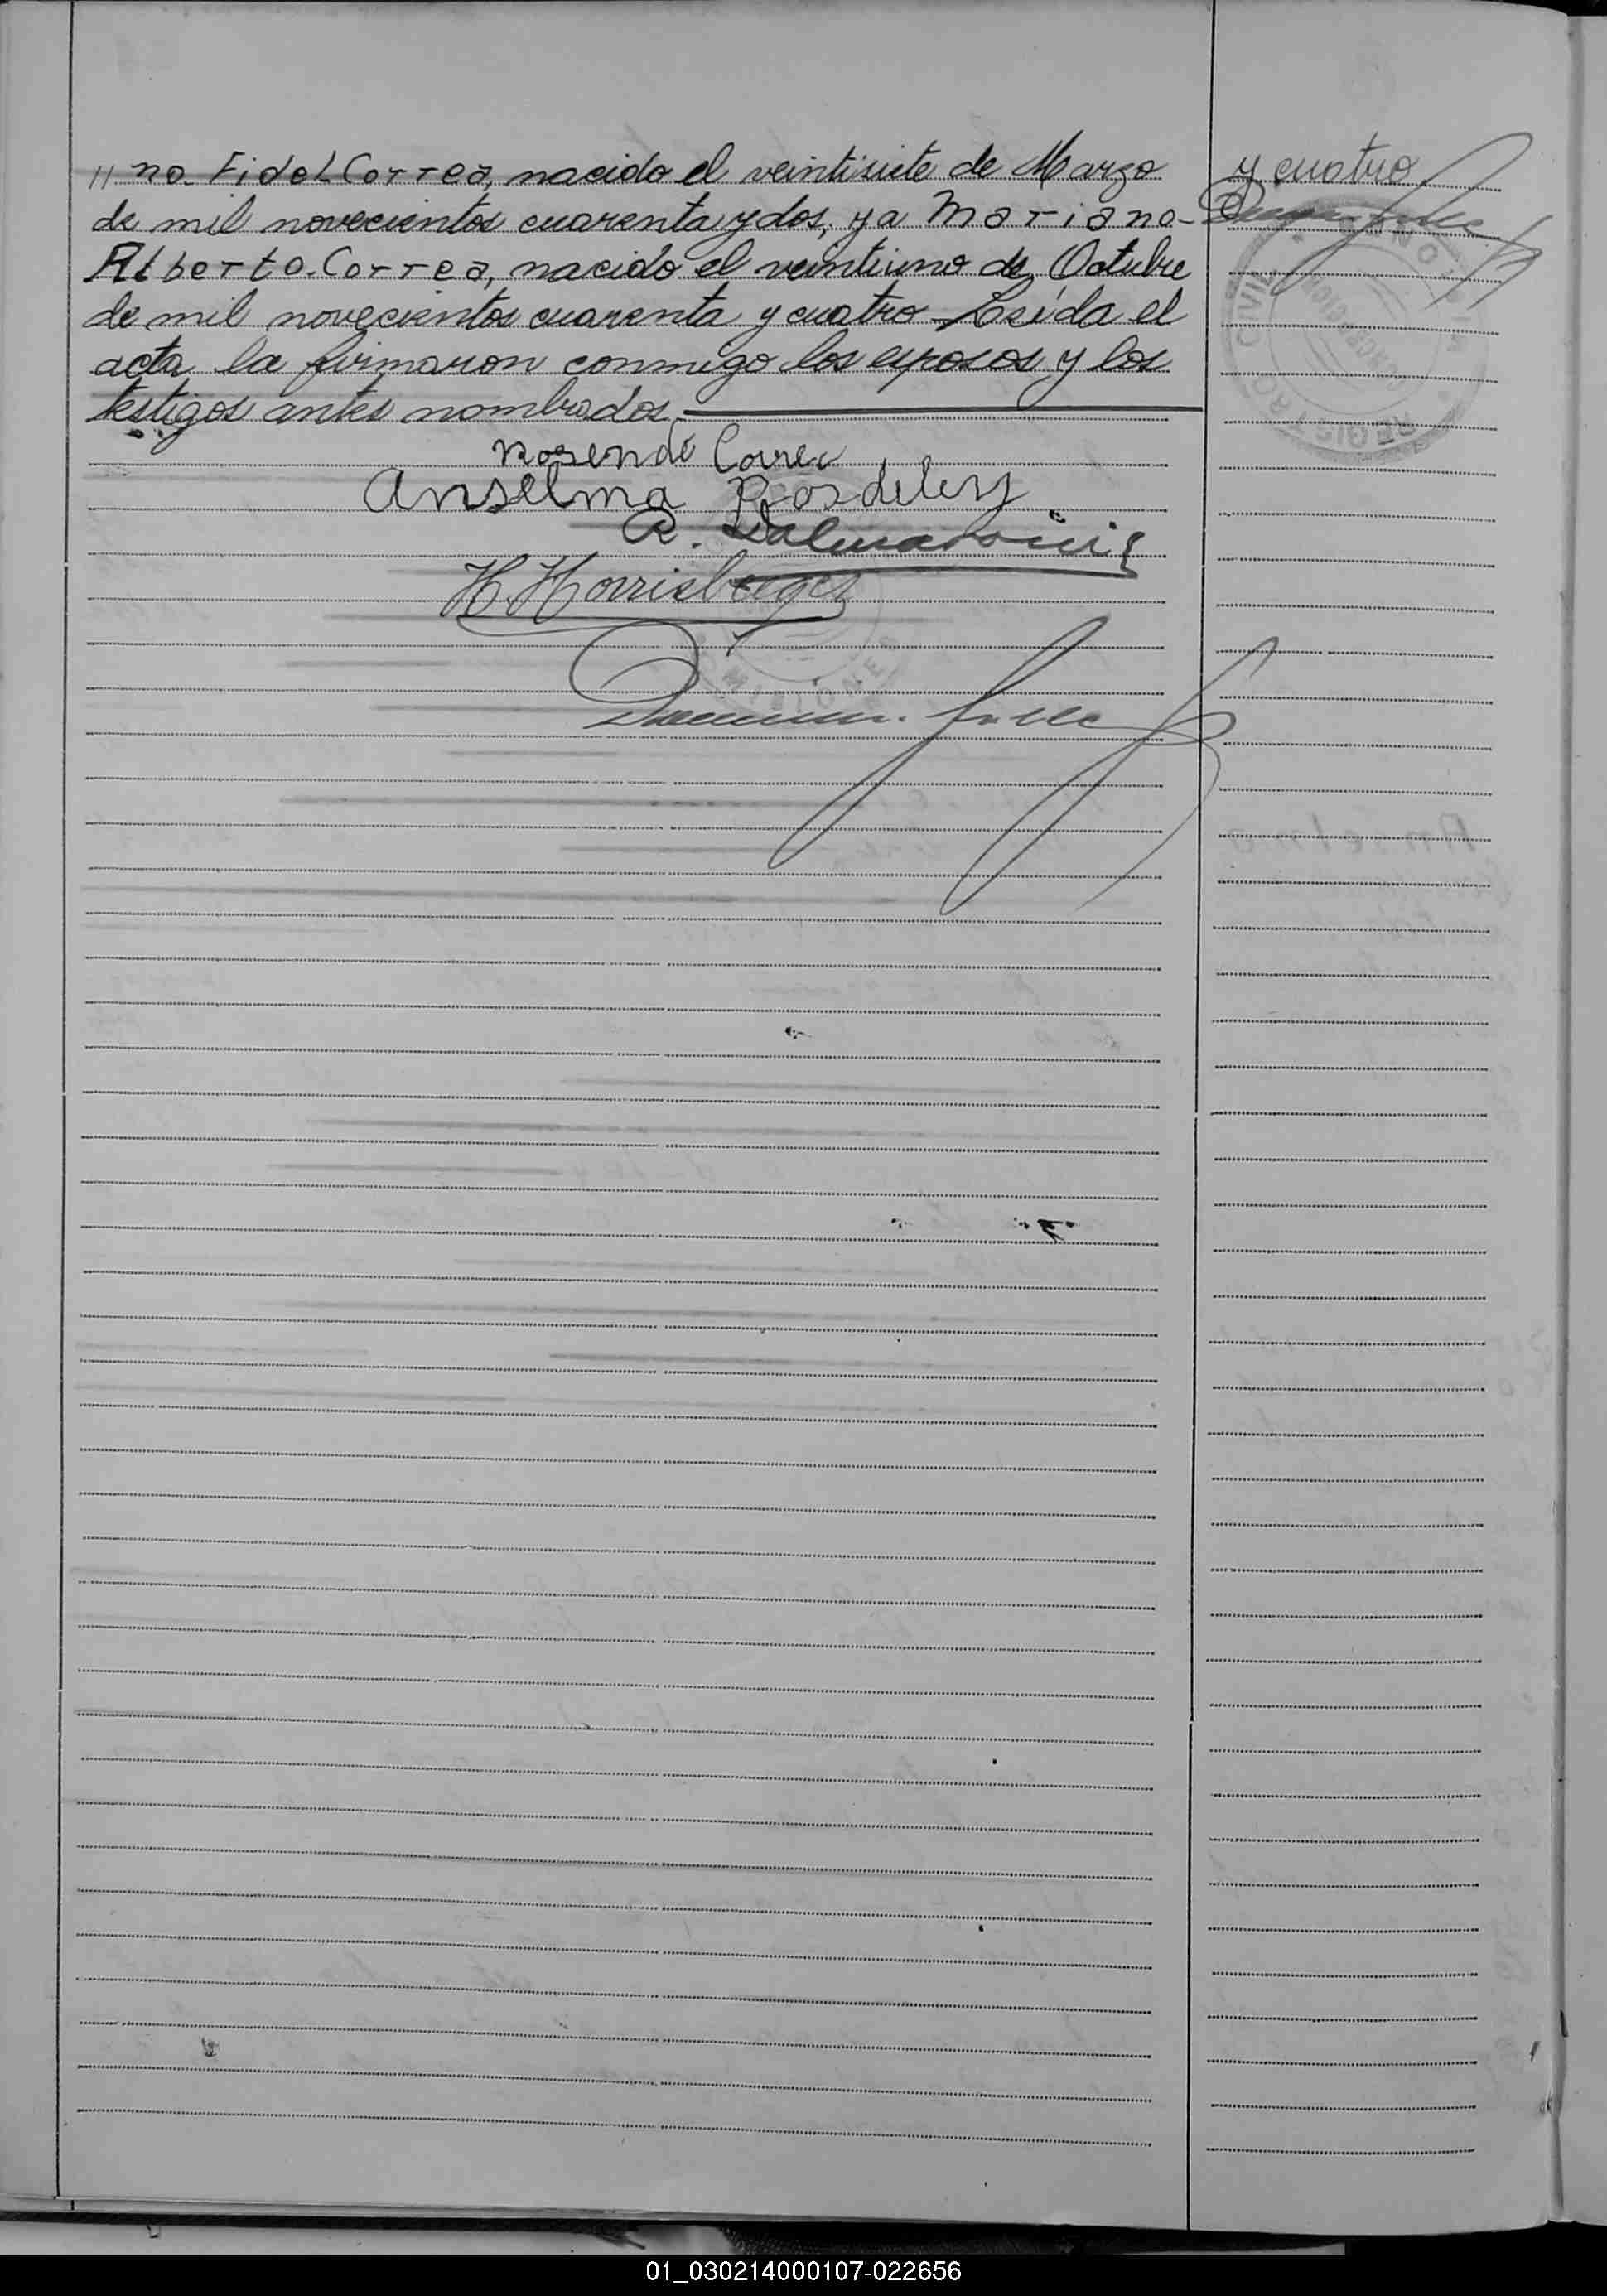 " no Fidel Correa, nacido el veintisiete de Marzo
de mil novecientos cuarenta y dos, y a Mariano-
Alberto Correa, nacido el veintiuno de Octubre
de mil novecientos cuarenta y cuatro. Leída el
acta la firmaron conmigo los esposos y los
testigos antes nombrados.
y cuatro
Rosendo Correa
Anselma
H. Horrisberger
REGISTRO CIVIL
MISIONES
01_030214000107-022656